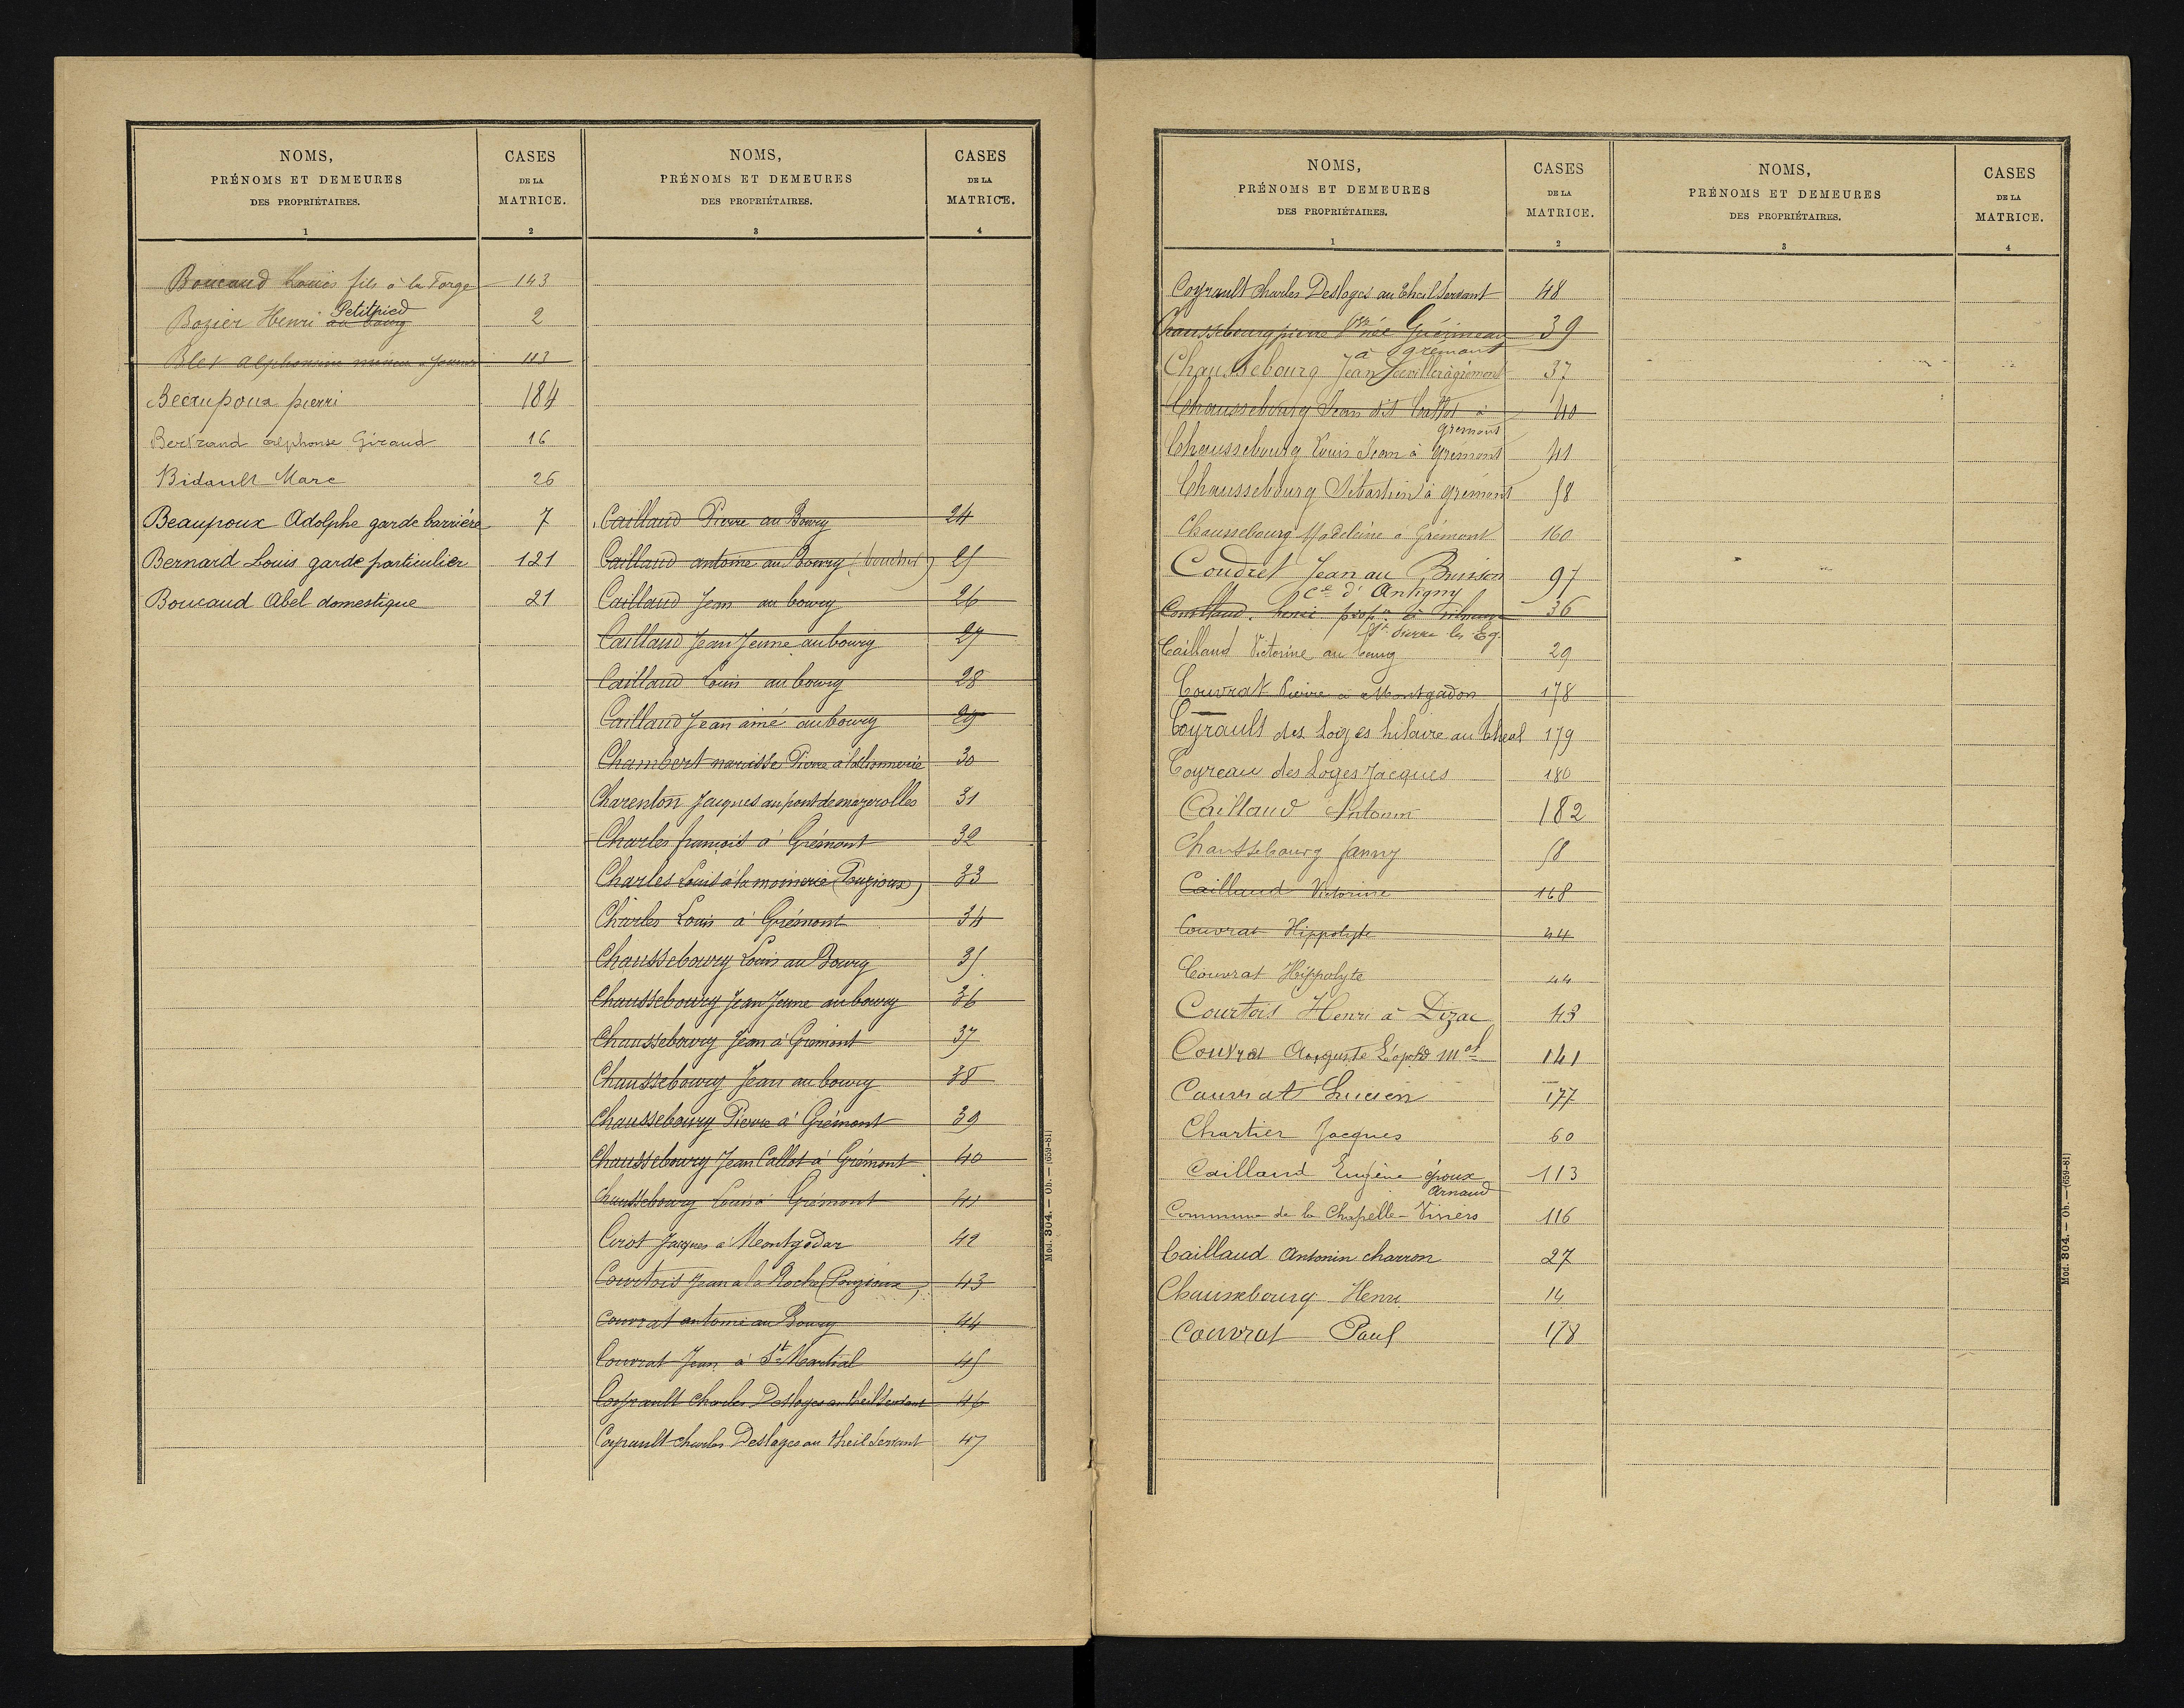 NOMS,
PRÉNOMS ET DEMEURES
DES PROPRIÉTAIRES.
1
CASES
DE LA
MATRICE.
2
NOMS,
PRÉNOMS ET DEMEURES
DES PROPRIÉTAIRES.
3
CASES
DE LA
MATRICE.
4
Boucaud Louis fils à la Forge 143
Petitpied
Bozier Henri au bourg 2
Blet alphonsine 113
Beaupoux pierri 184
Bertrand alphonse Giraud 16
Bidault Marc 26
Beaupoux Adolphe garde barrière 7
Bernard Louis garde particulier 121
Boucaud Abel domestique 21
Caillaud Pierre au Bourg 24
Caillaud antoine au Bourg (boucher) 25
Caillaud Jean au bourg 26
Caillaud Jean Jeune au bourg 27
Caillaud Louis au bourg 28
Caillaud Jean ainé au bourg 29
Chambert narcisse Pierre à 30
Charenton Jacques au pont de mazerolles 31
Charles françois à Grémont 32
Charles Louis à la moinerie (Pouzioux) 33
Charles Louis à Grémont 34
Chaussebourg Louis au Bourg 35
Chaussebourg Jean Jeune au bourg 36
Chaussebourg Jean à Grémont 37
Chaussebourg Jean au bourg 38
Chaussebourg Pierre à Grémont 39
Chaussebourg Jean Callot à Grémont 40
Chaussebourg Louis à Grémont 41
Cirot Jacques à Montgodar 42
Courtois Jean à la Roche (Pouzioux) 43
Couvrat antoine au Bourg 44
Couvrat Jean à St Martial 45
Coyrault Charles Desloges au theil Servant 46
Coyrault charles Desloges au theil Servant 47
Mod. 304. — Ob. — (659-81)
NOMS,
PRÉNOMS ET DEMEURES
DES PROPRIÉTAIRES.
1
CASES
DE LA
MATRICE.
2
NOMS,
PRÉNOMS ET DEMEURES
DES PROPRIÉTAIRES.
3
CASES
DE LA
MATRICE.
4
Coyrault charles Desloges au theil Servant 48
Chaussebourg pierre Vve née Guérineau 39
à grémont
Chaussebourg Jean à grémont 37
Chaussebourg Jean dit Callot à 40
gremont
Chaussebourg Louis Jean à Grémont 41
Chaussebourg Sébastien à grémont 58
Chaussebourg Madeleine à Grémont 160
Coudret Jean au Buisson 97
Cne d'Antigny
henri propre à 36
St Pierre les Eg.
Caillaud Victorine au bourg 29
Couvrat Pierre à Montgadon 178
Coyrault des Loges hilaire au theil 179
Coyreau des Loges Jacques 180
Caillaud Antonin 182
Chaussebourg fanny 58
Caillaud Victorine 168
Couvrat Hippolyte 44
Couvrat Hippolyte 44
Courtois Henri à Dizac 43
Couvrat Auguste Léopold 141
Couvrat Lucien 177
Chartier Jacques 60
Caillaud Eugène époux 113
Arnaud
Commune de la Chapelle-Viviers 116
Caillaud Antonin charron 27
Chaussebourg Henri 14
Couvrat Paul 178
Mod. 304. — Ob. — (659-81)